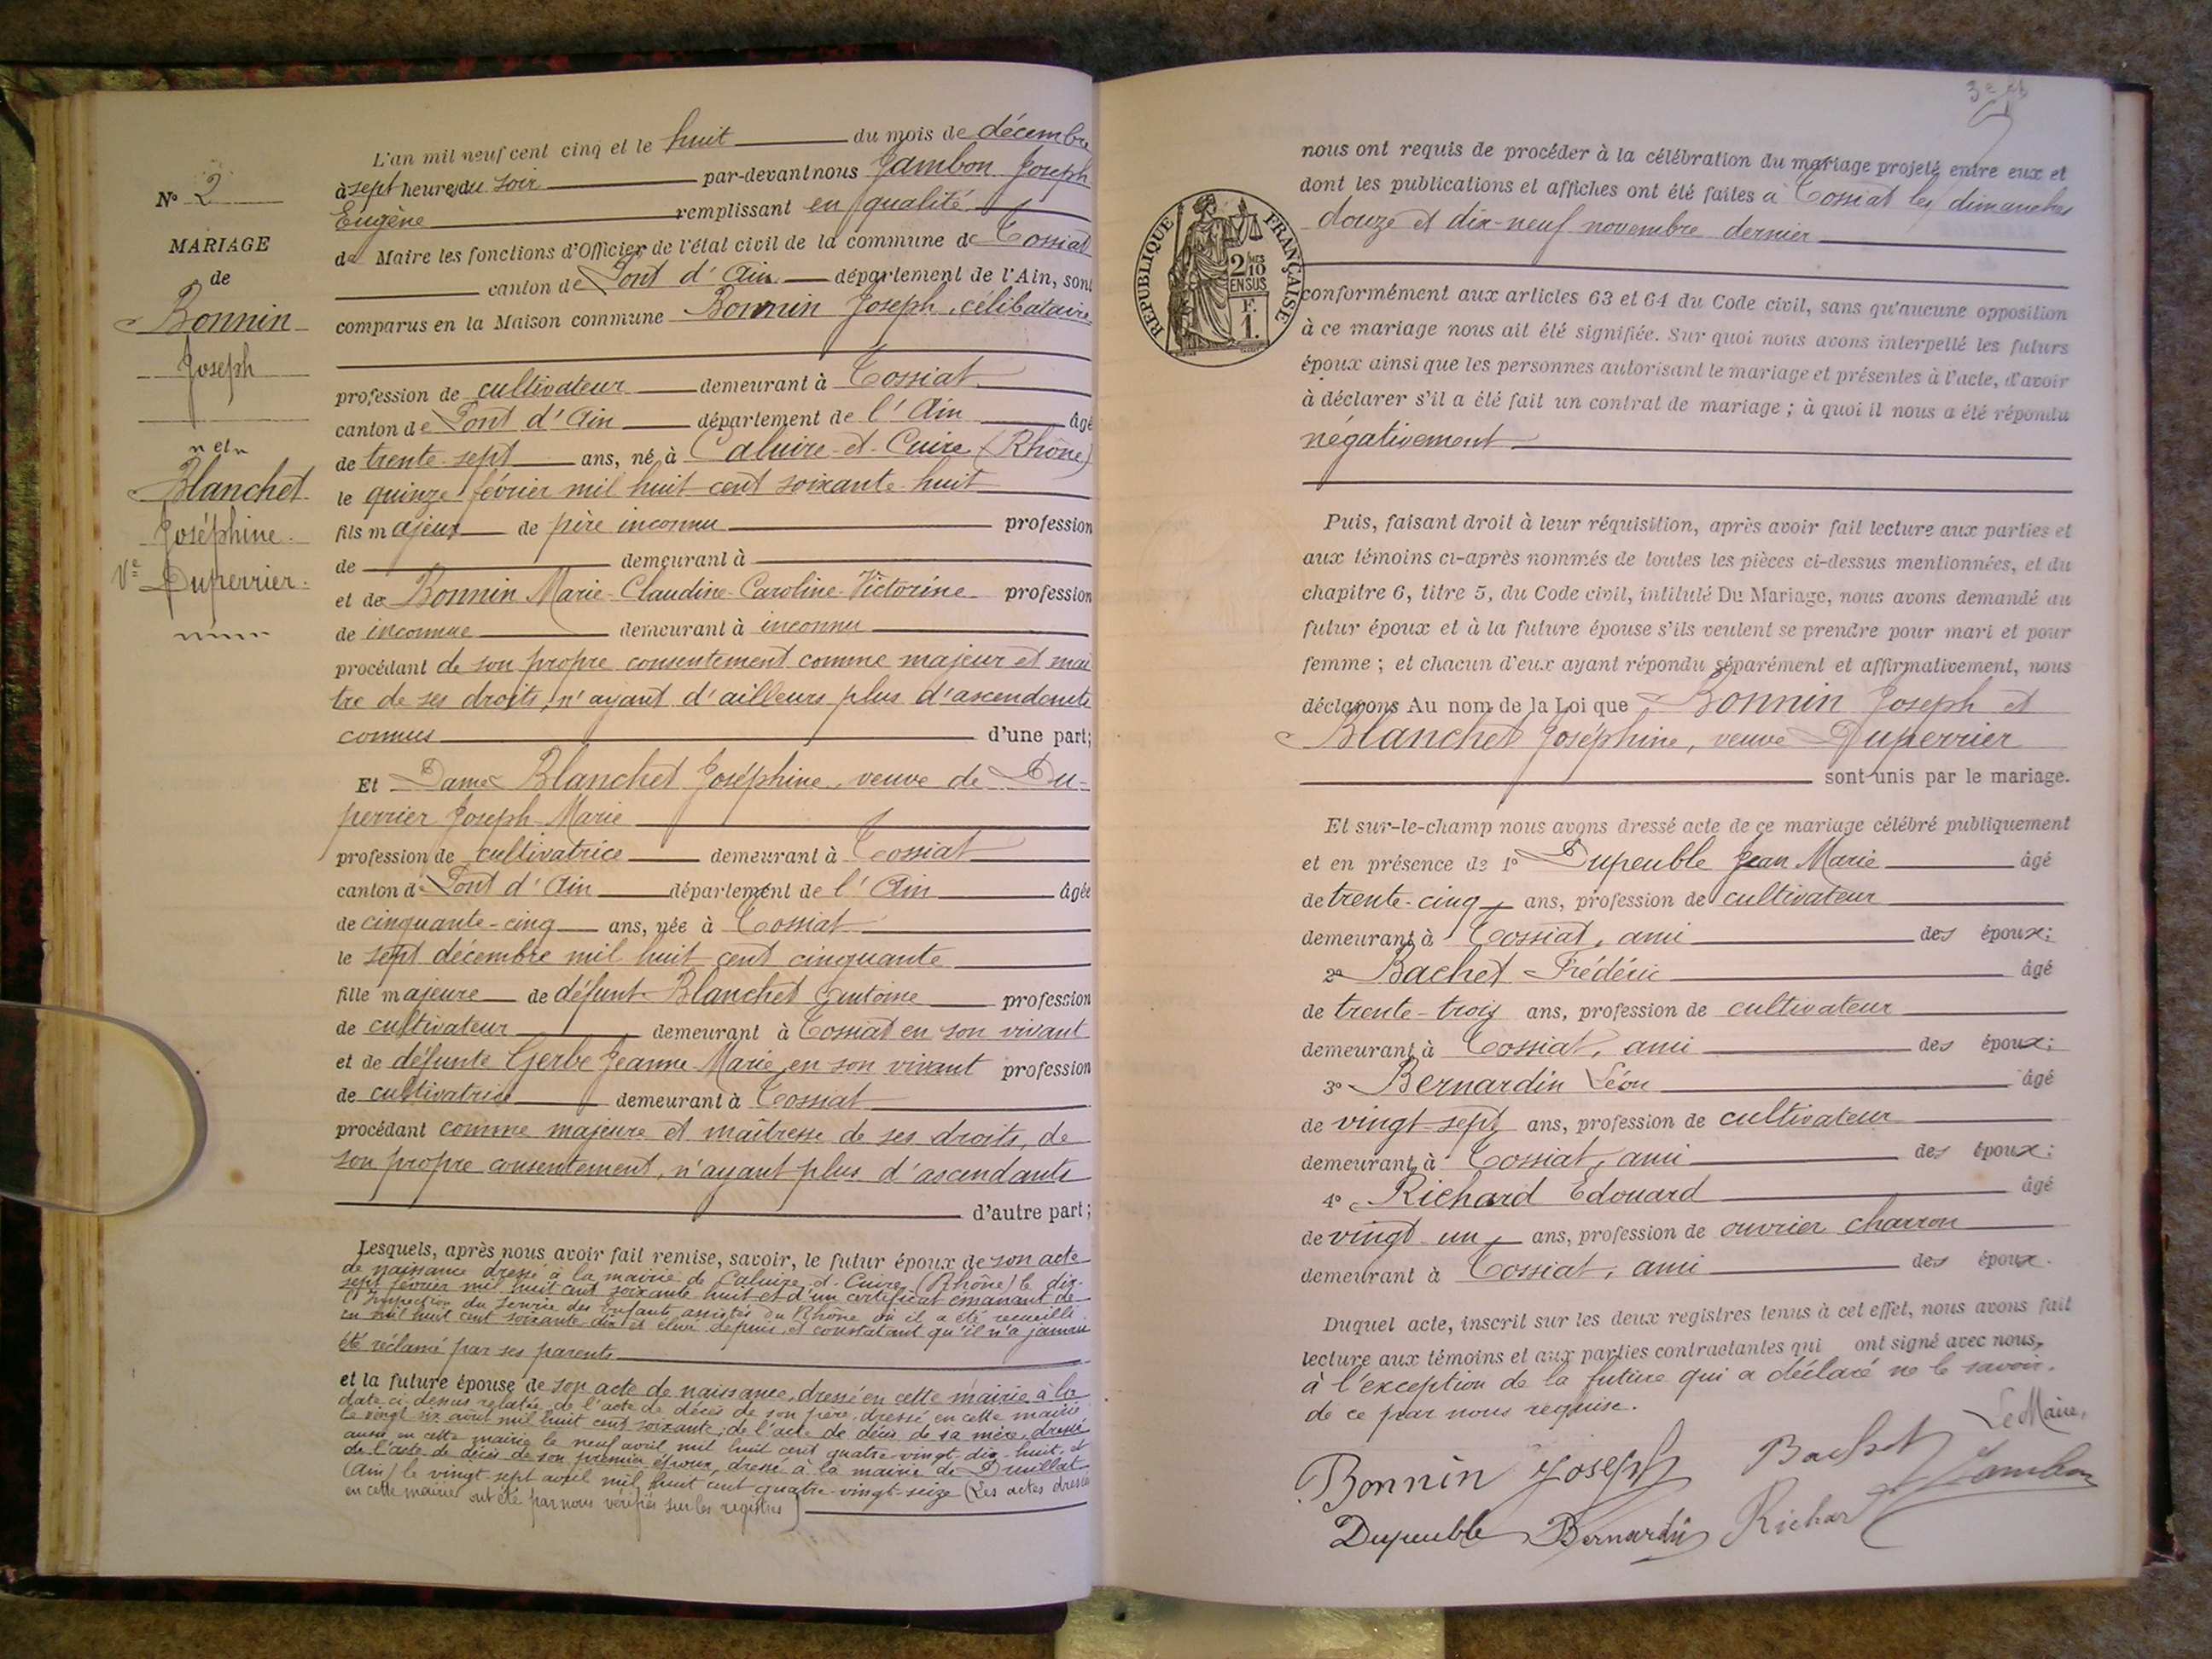 L'an mil neuf cent cinq et le huit du mois de décembre
à sept heures du soir par-devant nous Jambon Joseph
Eugène remplissant en qualité
de Maire les fonctions d'Officier de l'état civil de la commune de Tossiat
canton de Pont d'Ain département de l'Ain, sont
comparus en la Maison commune Bonnin Joseph, célibataire
profession de cultivateur demeurant à Tossiat
canton de Pont d'Ain département de l'Ain âgé
de trente-sept ans, né à Caluire-et-Cuire (Rhône)
le quinze février mil huit cent soixante-huit
fils majeur de père inconnu profession
de demeurant à
et de Bonnin Marie-Claudine-Caroline-Victorine profession
de inconnue demeurant à inconnu
procédant de son propre consentement comme majeur et maî
tre de ses droits, n'ayant d'ailleurs plus d'ascendants
connus d'une part;
Et Dame Blanchet Joséphine, veuve de Du-
perrier Joseph-Marie
profession de cultivatrice demeurant à Tossiat
canton de Pont d'Ain département de l'Ain âgée
de cinquante-cinq ans, née à Tossiat
le sept décembre mil huit cent cinquante
fille majeure de défunt Blanchet Antoine profession
de cultivateur demeurant à Tossiat en son vivant
et de défunte Gerbe Jeanne Marie, en son vivant profession
de cultivatrice demeurant à Tossiat
procédant comme majeure et maîtresse de ses droits, de
son propre consentement, n'ayant plus d'ascendants
d'autre part;
Lesquels, après nous avoir fait remise, savoir, le futur époux de son acte
de naissance dressé à la mairie de Caluire-et-Cuire (Rhône) le dix-
sept février mil huit cent soixante huit et d'un certificat émanant de
l'Inspection du service des Enfants assistés du Rhône où il a été recueilli
en mil huit cent soixante-dix et élevé depuis, et constatant qu'il n'a jamais
été réclamé par ses parents
et la future épouse de son acte de naissance, dressé en cette mairie à la
date ci-dessus relatée, de l'acte de décès de son père, dressé en cette mairie
le vingt six août mil huit cent soixante; de l'acte de décès de sa mère, dressé
aussi en cette mairie le neuf avril mil huit cent quatre-vingt-dix-huit, et
de l'acte de décès de son premier époux, dressé à la mairie de Druillat
(Ain) le vingt-sept avril mil huit cent quatre-vingt-seize (Les actes dressés
en cette mairie ont été par nous vérifiés sur les registres)
N° 2
MARIAGE
de
Bonnin
Joseph
et
Blanchet
Joséphine
Ve Duperrier
nous ont requis de procéder à la célébration du mariage projeté entre eux et
dont les publications et affiches ont été faites à Tossiat les dimanches
douze et dix-neuf novembre dernier
conformément aux articles 63 et 64 du Code civil, sans qu'aucune opposition
à ce mariage nous ait été signifiée. Sur quoi nous avons interpellé les futurs
époux ainsi que les personnes autorisant le mariage et présentes à l'acte, d'avoir
à déclarer s'il a été fait un contrat de mariage; à quoi il nous a été répondu
négativement
RÉPUBLIQUE FRANÇAISE
2/10 MES
EN SUS
F.
1.
Puis, faisant droit à leur réquisition, après avoir fait lecture aux parties et
aux témoins ci-après nommés de toutes les pièces ci-dessus mentionnées, et du
chapitre 6, titre 5, du Code civil, intitulé Du Mariage, nous avons demandé au
futur époux et à la future épouse s'ils veulent se prendre pour mari et pour
femme; et chacun d'eux ayant répondu séparément et affirmativement, nous
déclarons Au nom de la Loi que Bonnin Joseph et
Blanchet Joséphine, veuve Duperrier
sont unis par le mariage.
Et sur-le-champ nous avons dressé acte de ce mariage célébré publiquement
et en présence de 1° Dupeuble Jean Marie âgé
de trente-cinq ans, profession de cultivateur
demeurant à Tossiat, ami des époux;
2° Bachet Frédéric âgé
de trente-trois ans, profession de cultivateur
demeurant à Tossiat, ami des époux;
3° Bernardin Léon âgé
de vingt-sept ans, profession de cultivateur
demeurant à Tossiat, ami des époux;
4° Richard Edouard âgé
de vingt-un ans, profession de ouvrier charron
demeurant à Tossiat, ami des époux.
Duquel acte, inscrit sur les deux registres tenus à cet effet, nous avons fait
lecture aux témoins et aux parties contractantes qui ont signé avec nous,
à l'exception de la future qui a déclaré ne le savoir,
de ce par nous requise.
Le Maire,
Bonnin Joseph Bachet Jambon
Dupeuble Bernardin Richard